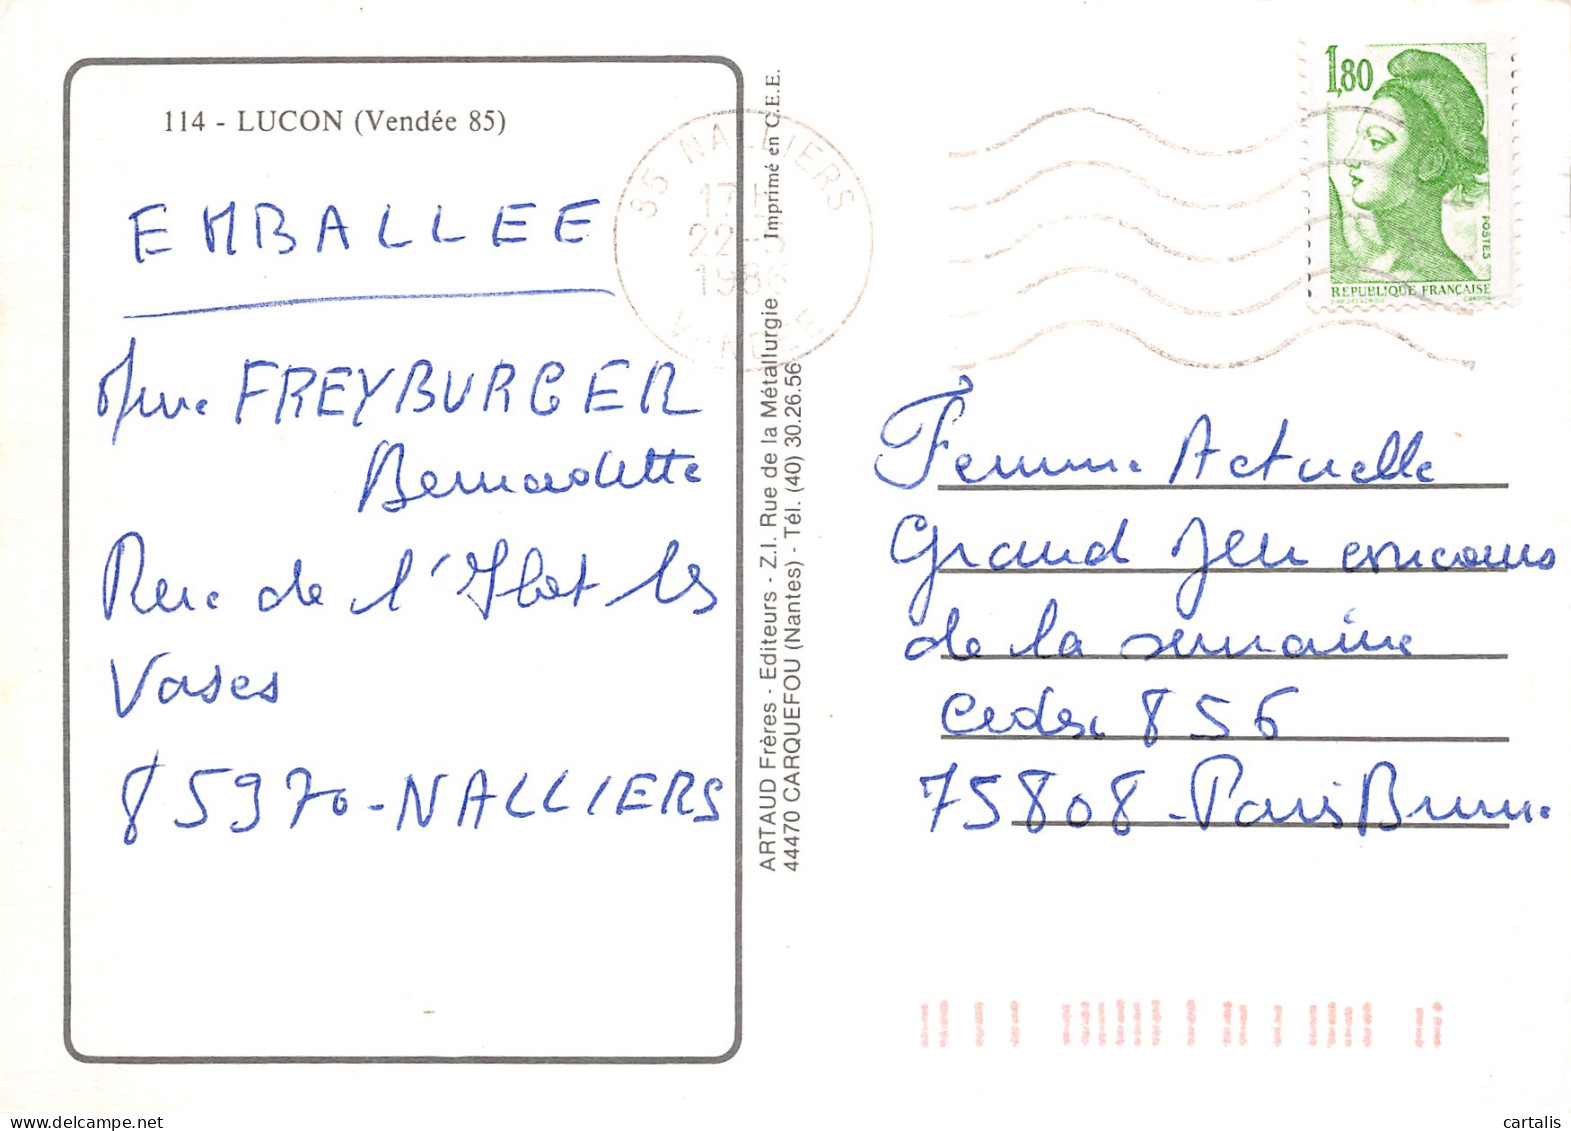 114 - LUCON (Vendée 85)
EMBALLEE
Mme FREYBURGER
Bernadette
Rue de l'Ilot les
Vases
85970-NALLIERS
ARTAUD Frères - Editeurs - Z.I. Rue de la Métallurgie
44470 CARQUEFOU (Nantes) - Tél. (40) 30.26.56
Imprimé en C.E.E.
85 NALLIERS
22-
VENDEE
1,80
POSTES
REPUBLIQUE FRANÇAISE
Femme Actuelle
Grand Jeu concours
de la semaine
Cedex 856
75808-Paris Brune
cartalis